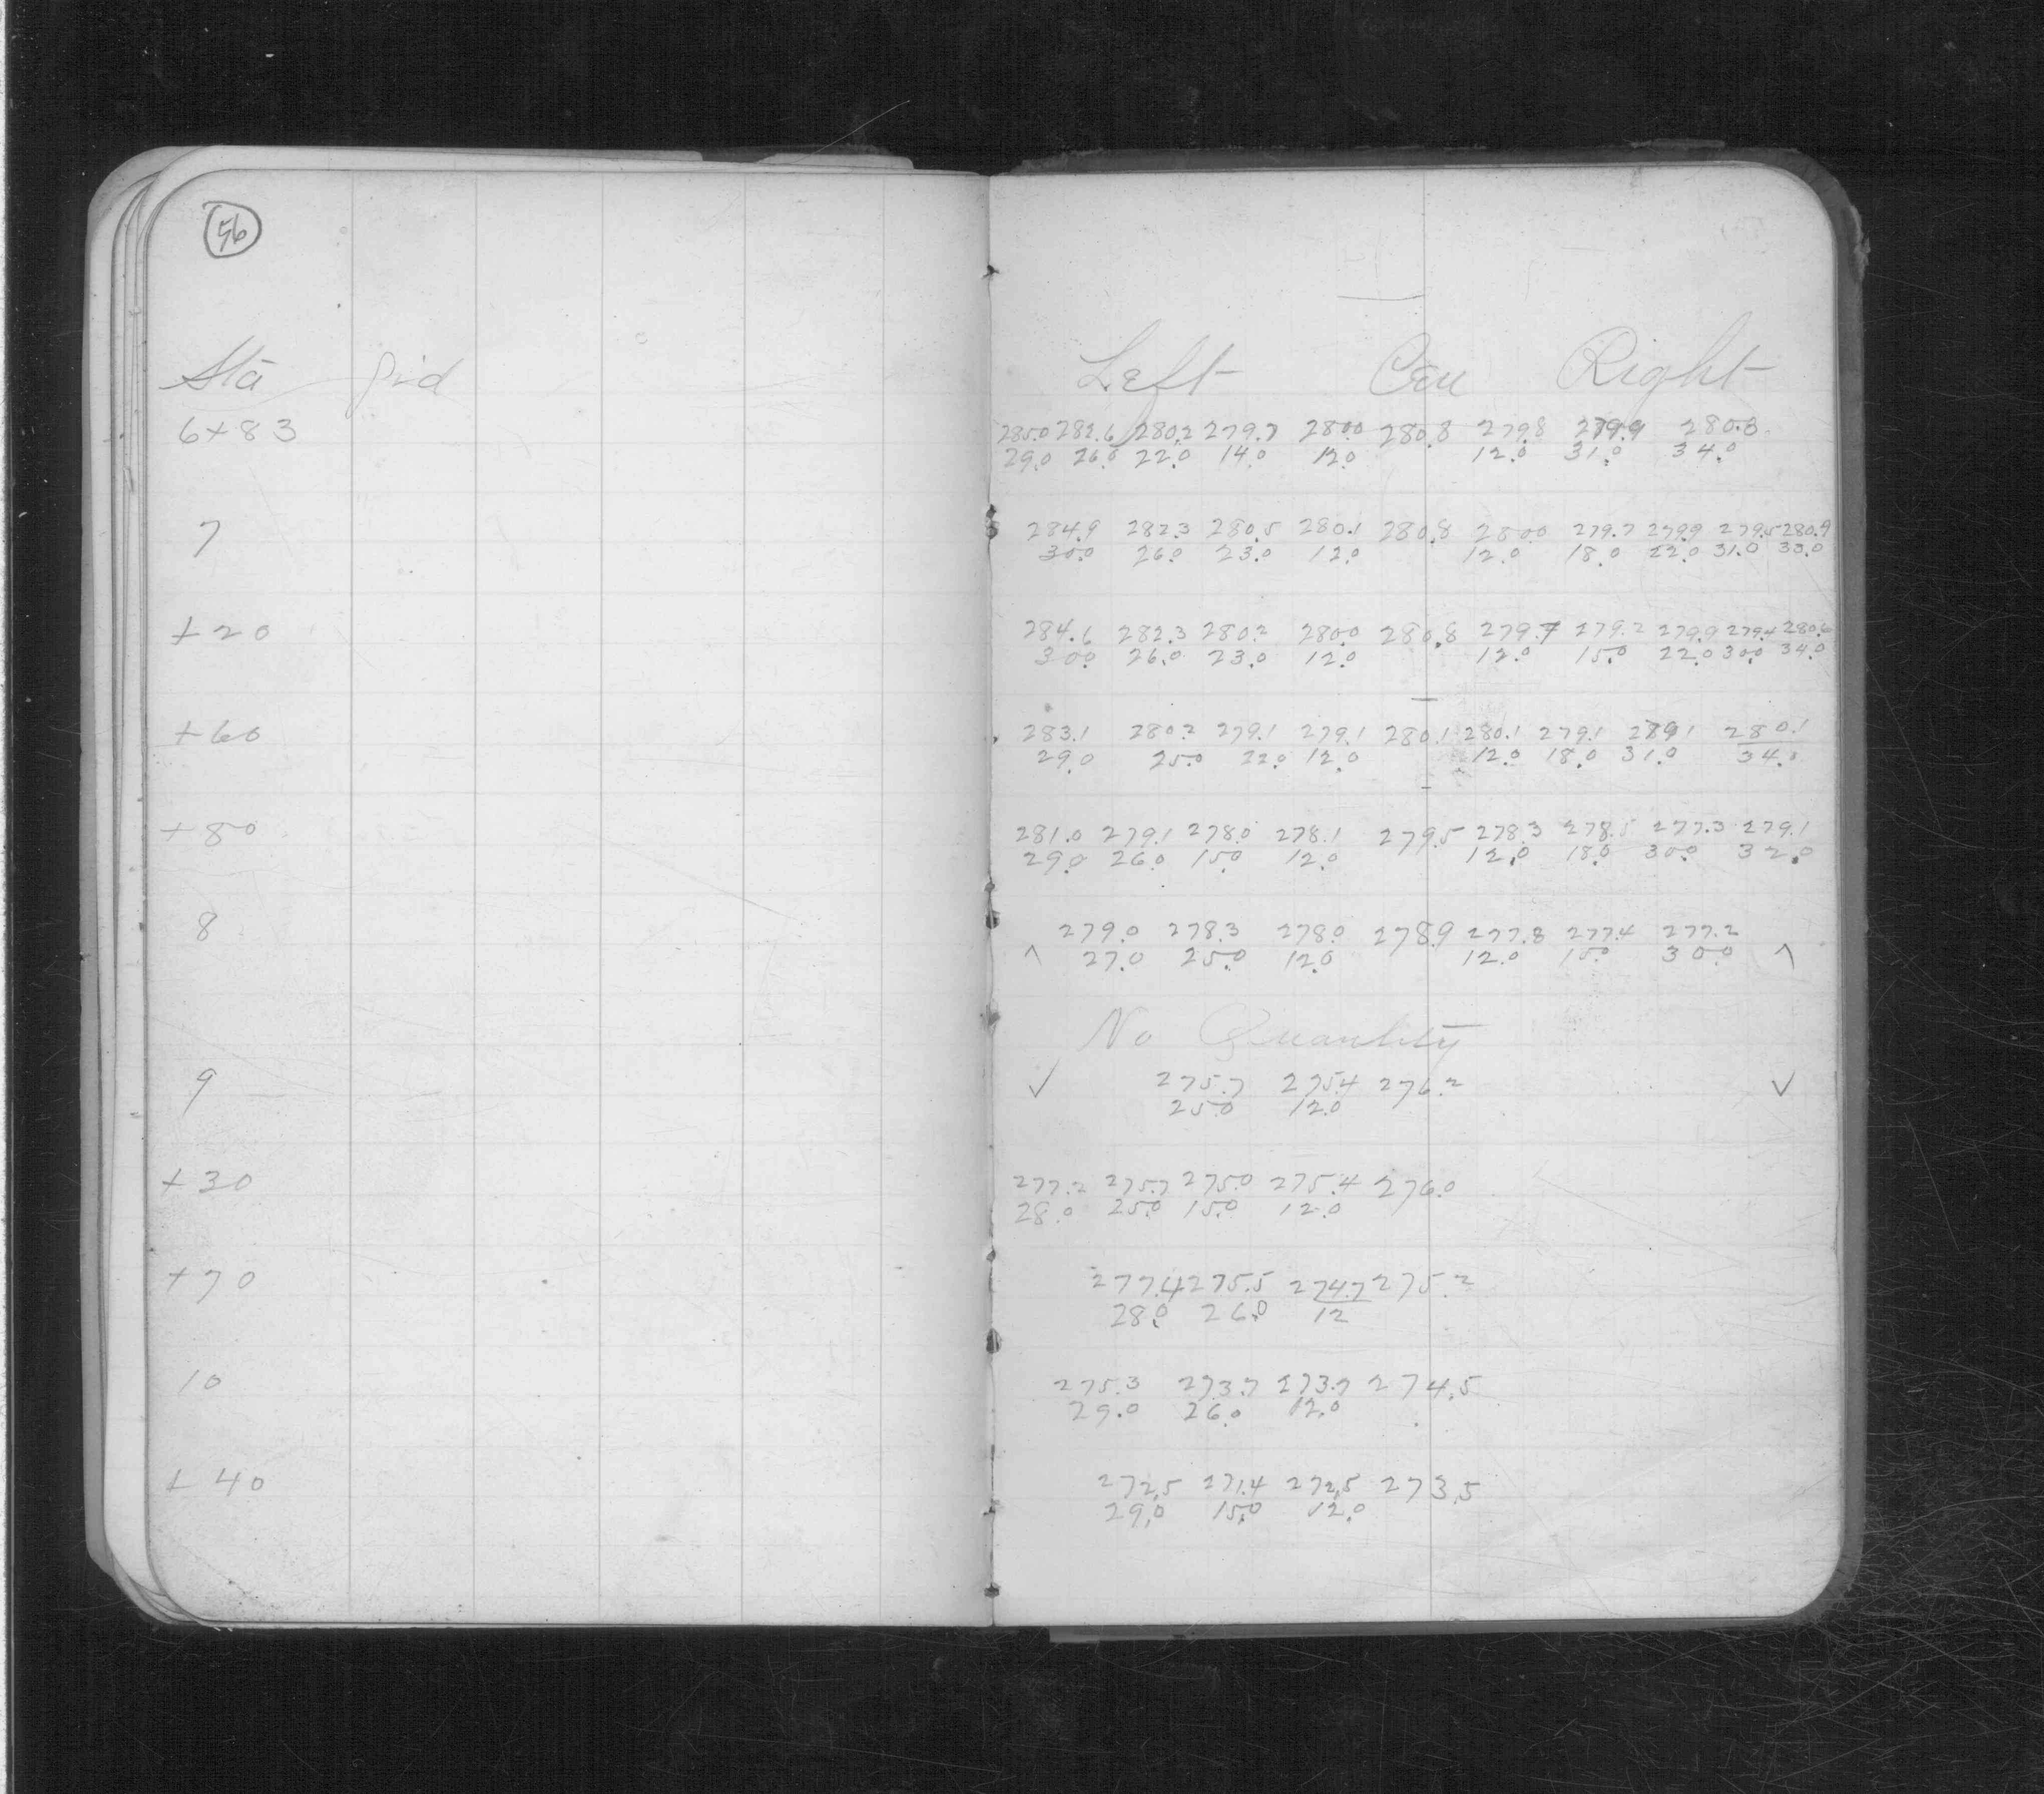 56
Sta Gid Left Cen Right
6+83 285.0 282.6 280.2 279.7 280.0 280.8 279.8 279.9 280.3
29.0 26.0 22.0 14.0 12.0 12.0 31.0 34.0
7 284.9 282.3 280.5 280.1 280.8 280.0 279.7 279.9 279.5 280.9
30.0 26.0 23.0 12.0 12.0 18.0 22.0 31.0 33.0
+20 284.6 282.3 280.2 280.0 280.8 279.7 279.2 279.9 279.4 280.6
30.0 26.0 23.0 12.0 12.0 15.0 22.0 30.0 34.0
+60 283.1 280.2 279.1 279.1 280.1 280.1 279.1 279.1 280.1
29.0 25.0 22.0 12.0 12.0 18.0 31.0 34.0
+80 281.0 279.1 278.0 278.1 279.5 278.3 278.5 277.3 279.1
29.0 26.0 15.0 12.0 12.0 18.0 30.0 32.0
8 279.0 278.3 278.0 278.9 277.8 277.4 277.2
^ 27.0 25.0 12.0 12.0 15.0 30.0 ^
No Quantity
9 ✓ 275.7 275.4 276.2 ✓
25.0 12.0
+30 277.2 275.7 275.0 275.4 276.0
28.0 25.0 15.0 12.0
+70 277.4 275.5 274.7 275.2
28.0 26.0 12
10 275.3 273.7 273.7 274.5
29.0 26.0 12.0
+40 272.5 271.4 272.5 273.5
29.0 15.0 12.0